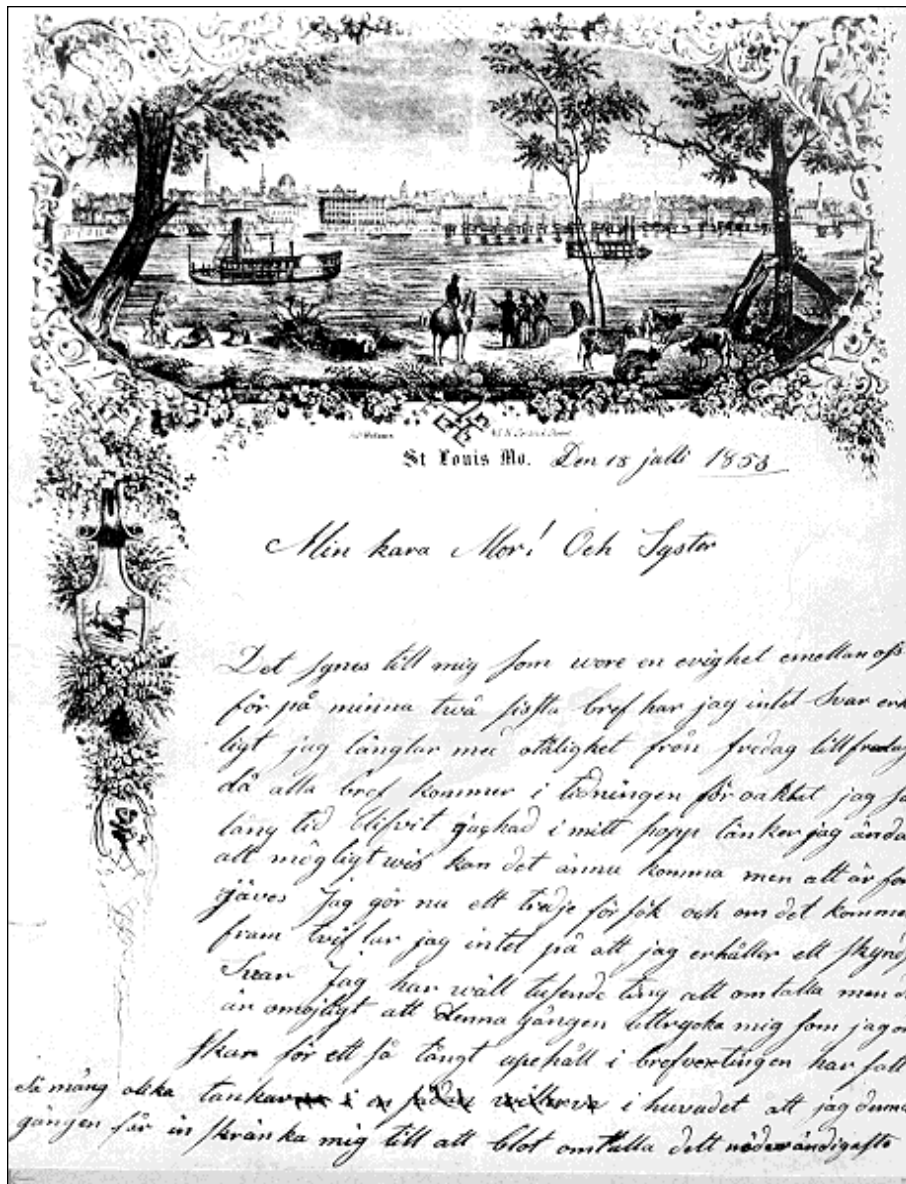 St Louis Mo. Den 18 julli 1853
Min kara Mor! Och Syster
Det synes till mig som wore en evighet emellan oss
för på minna twå sissta bref har jag intet Svar
ligt jag längtar med otålighet från fredag till fredag
då alla bref kommer i tidningen för oaktet jag
lång tid blifvit gäckad i mitt hopp tänker jag ända
att mögligt wis kan det ännu komma men att är for
gäves Jag gör nu ett tredje försök och om det komme
fram twiflar jag intet på att jag erhåller ett
Svar Jag har wäll tusende ting att omtalla men
är omöjligt att denna gången uttrycka mig som jag
skar för ett så långt upehåll i brefvextingen har fall
så mång olika tankar i huvudet att jag denna
gången får in skränka mig till att blot omtalla dett nödwändigaste